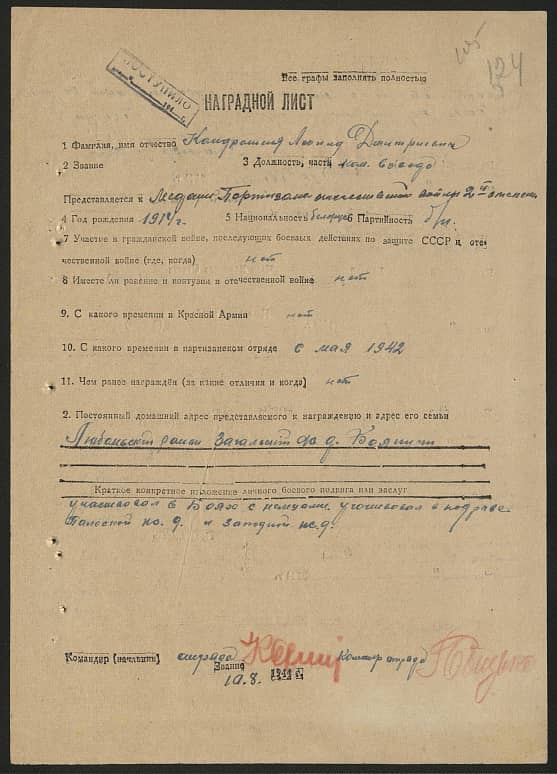 105
124
Все графы заполнять полностью
ПОСТУПИЛО
НАГРАДНОЙ ЛИСТ
1 Фамилия, имя отчество Кандрашеня Леонид Дмитриевич
2 Звание 3 Должность, часть ком. взвода
Представляется к Медали Партизане отечествен войны 2й степени
4 Год рождения 1917 г. 5 Национальность белорус 6 Партийность б/п.
7 Участие в гражданской войне, последующих боевых действиях по защите СССР и оте-
чественной войне (где, когда) нет
8 Имеете ли ранение и контузии в отечественной войне нет
9. С какого времени в Красной Армии нет
10. С какого времени в партизанском отряде с мая 1942
11. Чем ранее награждён (за какие отличия и когда) нет
2. Постоянный домашний адрес представляемого к награждению и адрес его семьи
Любаньский район д.
Краткое конкретное изложение личного боевого подвига или заслуг
участвовал в боях с немцами участвовал в подрыве
ж.д. и западной ж.д.
Командир (начальник) отряда Комиссар отряда
Звание
19.8. 194 г.